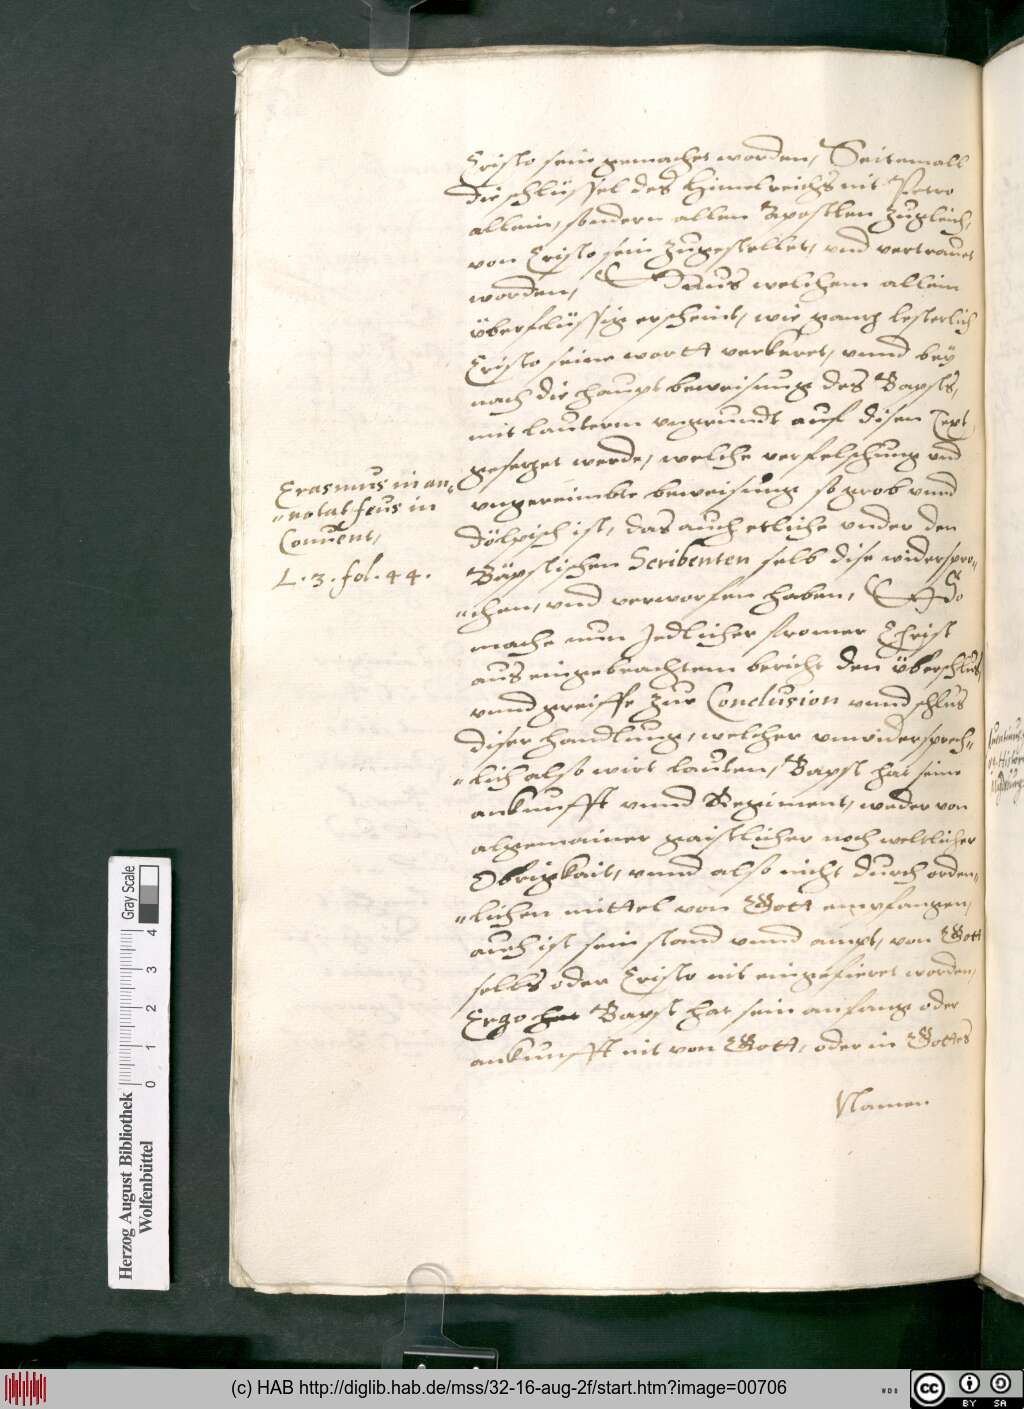 Cristo sein gemachet worden, Seitemall
die schlüssel des Himelreichs nit Petro
allein, sondern allen Apostlen zugleich,
von Cristo sein zugestellet, vnd vertrauet
worden, Auus welchem allein
überflüssig erscheint, wie gantz lesterlich
Cristo seine wortt verkeret, vnnd bey
nach die haupt beweisung des Bapsts,
mit lauterm vngrundt auf disen Text
gesetzet werde, welche verfelschung vnd
vngereimbte beweisung so grob vnnd
dölpisch ist, das auch etliche vnder den
Bäpstischen Scribenten selb dise widerspro-
"chen, vnd verworfen haben, So
mache nun Jedlicher fromer Christ
aus eingebrachtem bericht den überschlus,
vnnd greiffe zur Conclusion vnnd schlus
diser handlung, welcher vnwidersprech"
"lich also wirt lauten, Bapst hat seine
ankunfft vnnd Regiment, weder von
algemainer gaistlicher noch weltlicher
Obrigkait, vnnd also nicht durch orden"
"lichen mittel von Gott empfangen,
auch ist sein stand vnnd ampt, von Gott
selbs oder Cristo nit eingefieret worden,
Ergo hat Bapst hat sein anfang oder
ankunfft nit von Gott, oder in Gottes
Namen
Erasmus in an"
"notat in
L. 3. fol. 44.
Herzog August Bibliothek
Wolfenbüttel
0 1 2 3 4
Gray Scale
(c) HAB http://diglib.hab.de/mss/32-16-aug-2f/start.htm?image=00706
WDB
cc BY SA